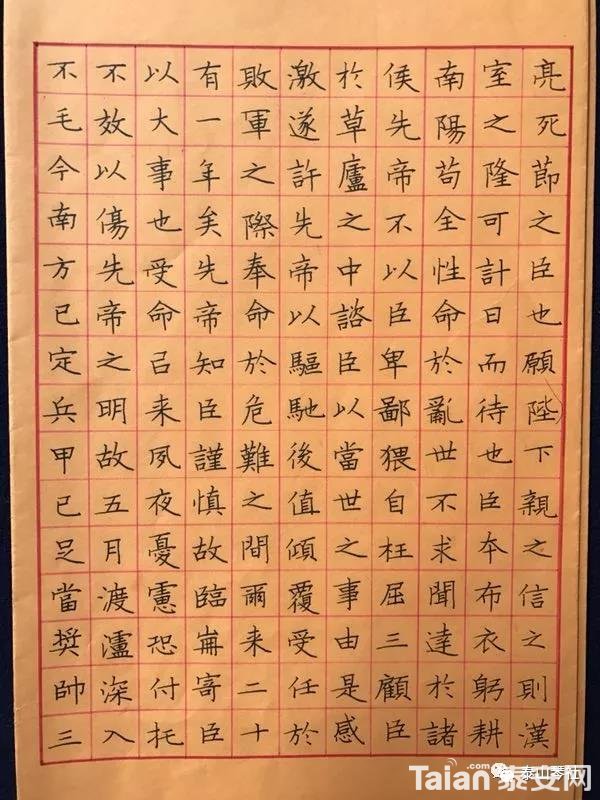 亮死節之臣也願陛下親之信之則漢
室之隆可計日而待也臣夲布衣躬耕
南陽苟全性命於亂世不求聞達於諸
侯先帝不以臣卑鄙猥自枉屈三顧臣
於草廬之中諮臣以當世之事由是感
激遂許先帝以驅馳後值傾覆受任於
敗軍之際奉命於危難之間爾来二十
有一年矣先帝知臣謹慎故臨崩寄臣
以大事也受命㠯来夙夜憂憲恐付托
不效以傷先帝之明故五月渡瀘深入
不毛今南方已定兵甲已足當獎帥三
.com
Taian泰安网